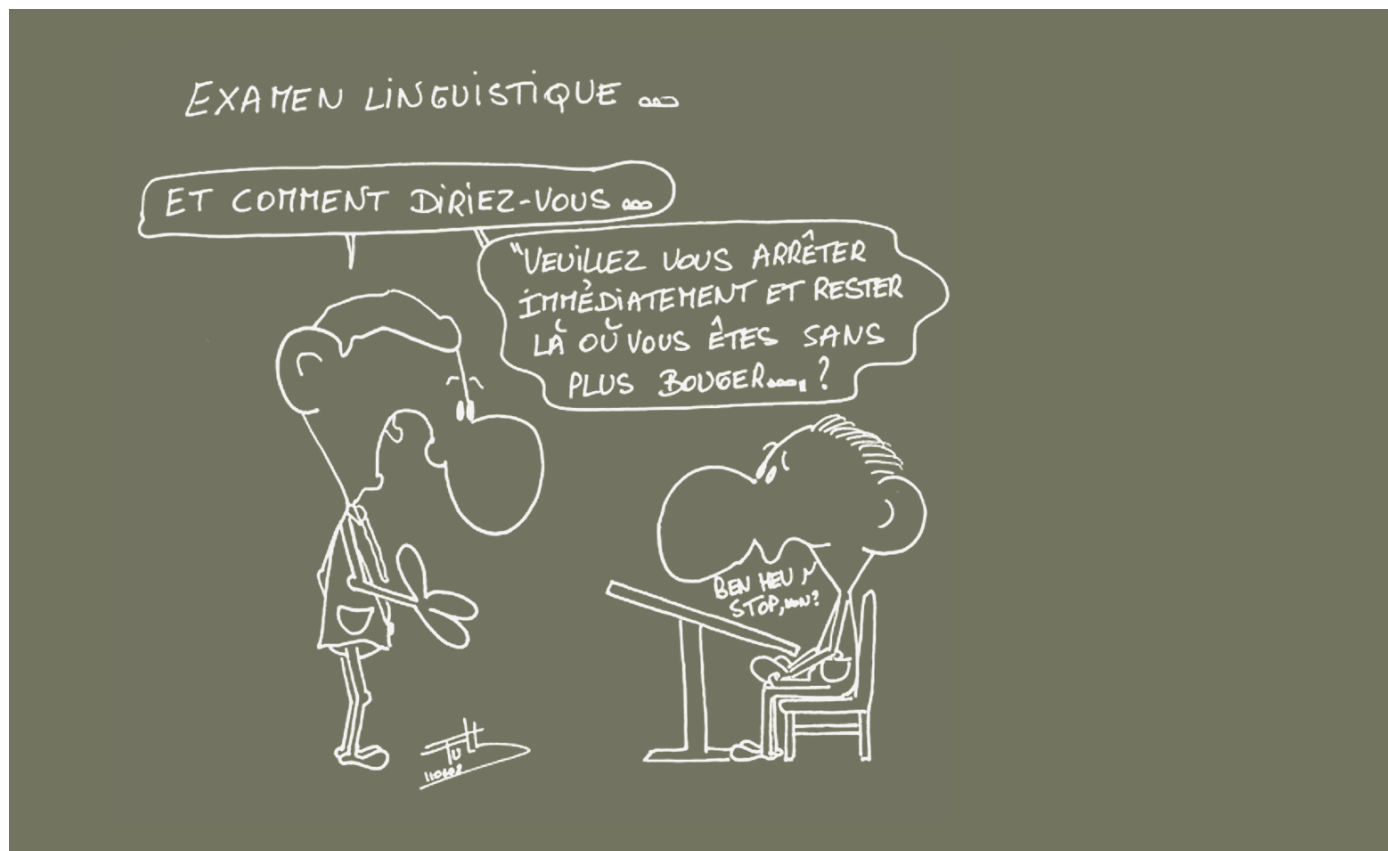 EXAMEN LINGUISTIQUE ...
ET COMMENT DIRIEZ-VOUS ...
"VEUILLEZ VOUS ARRÊTER
IMMÉDIATEMENT ET RESTER
LÀ OÙ VOUS ÊTES SANS
PLUS BOUGER....?
BEN HEU,
STOP, NON?